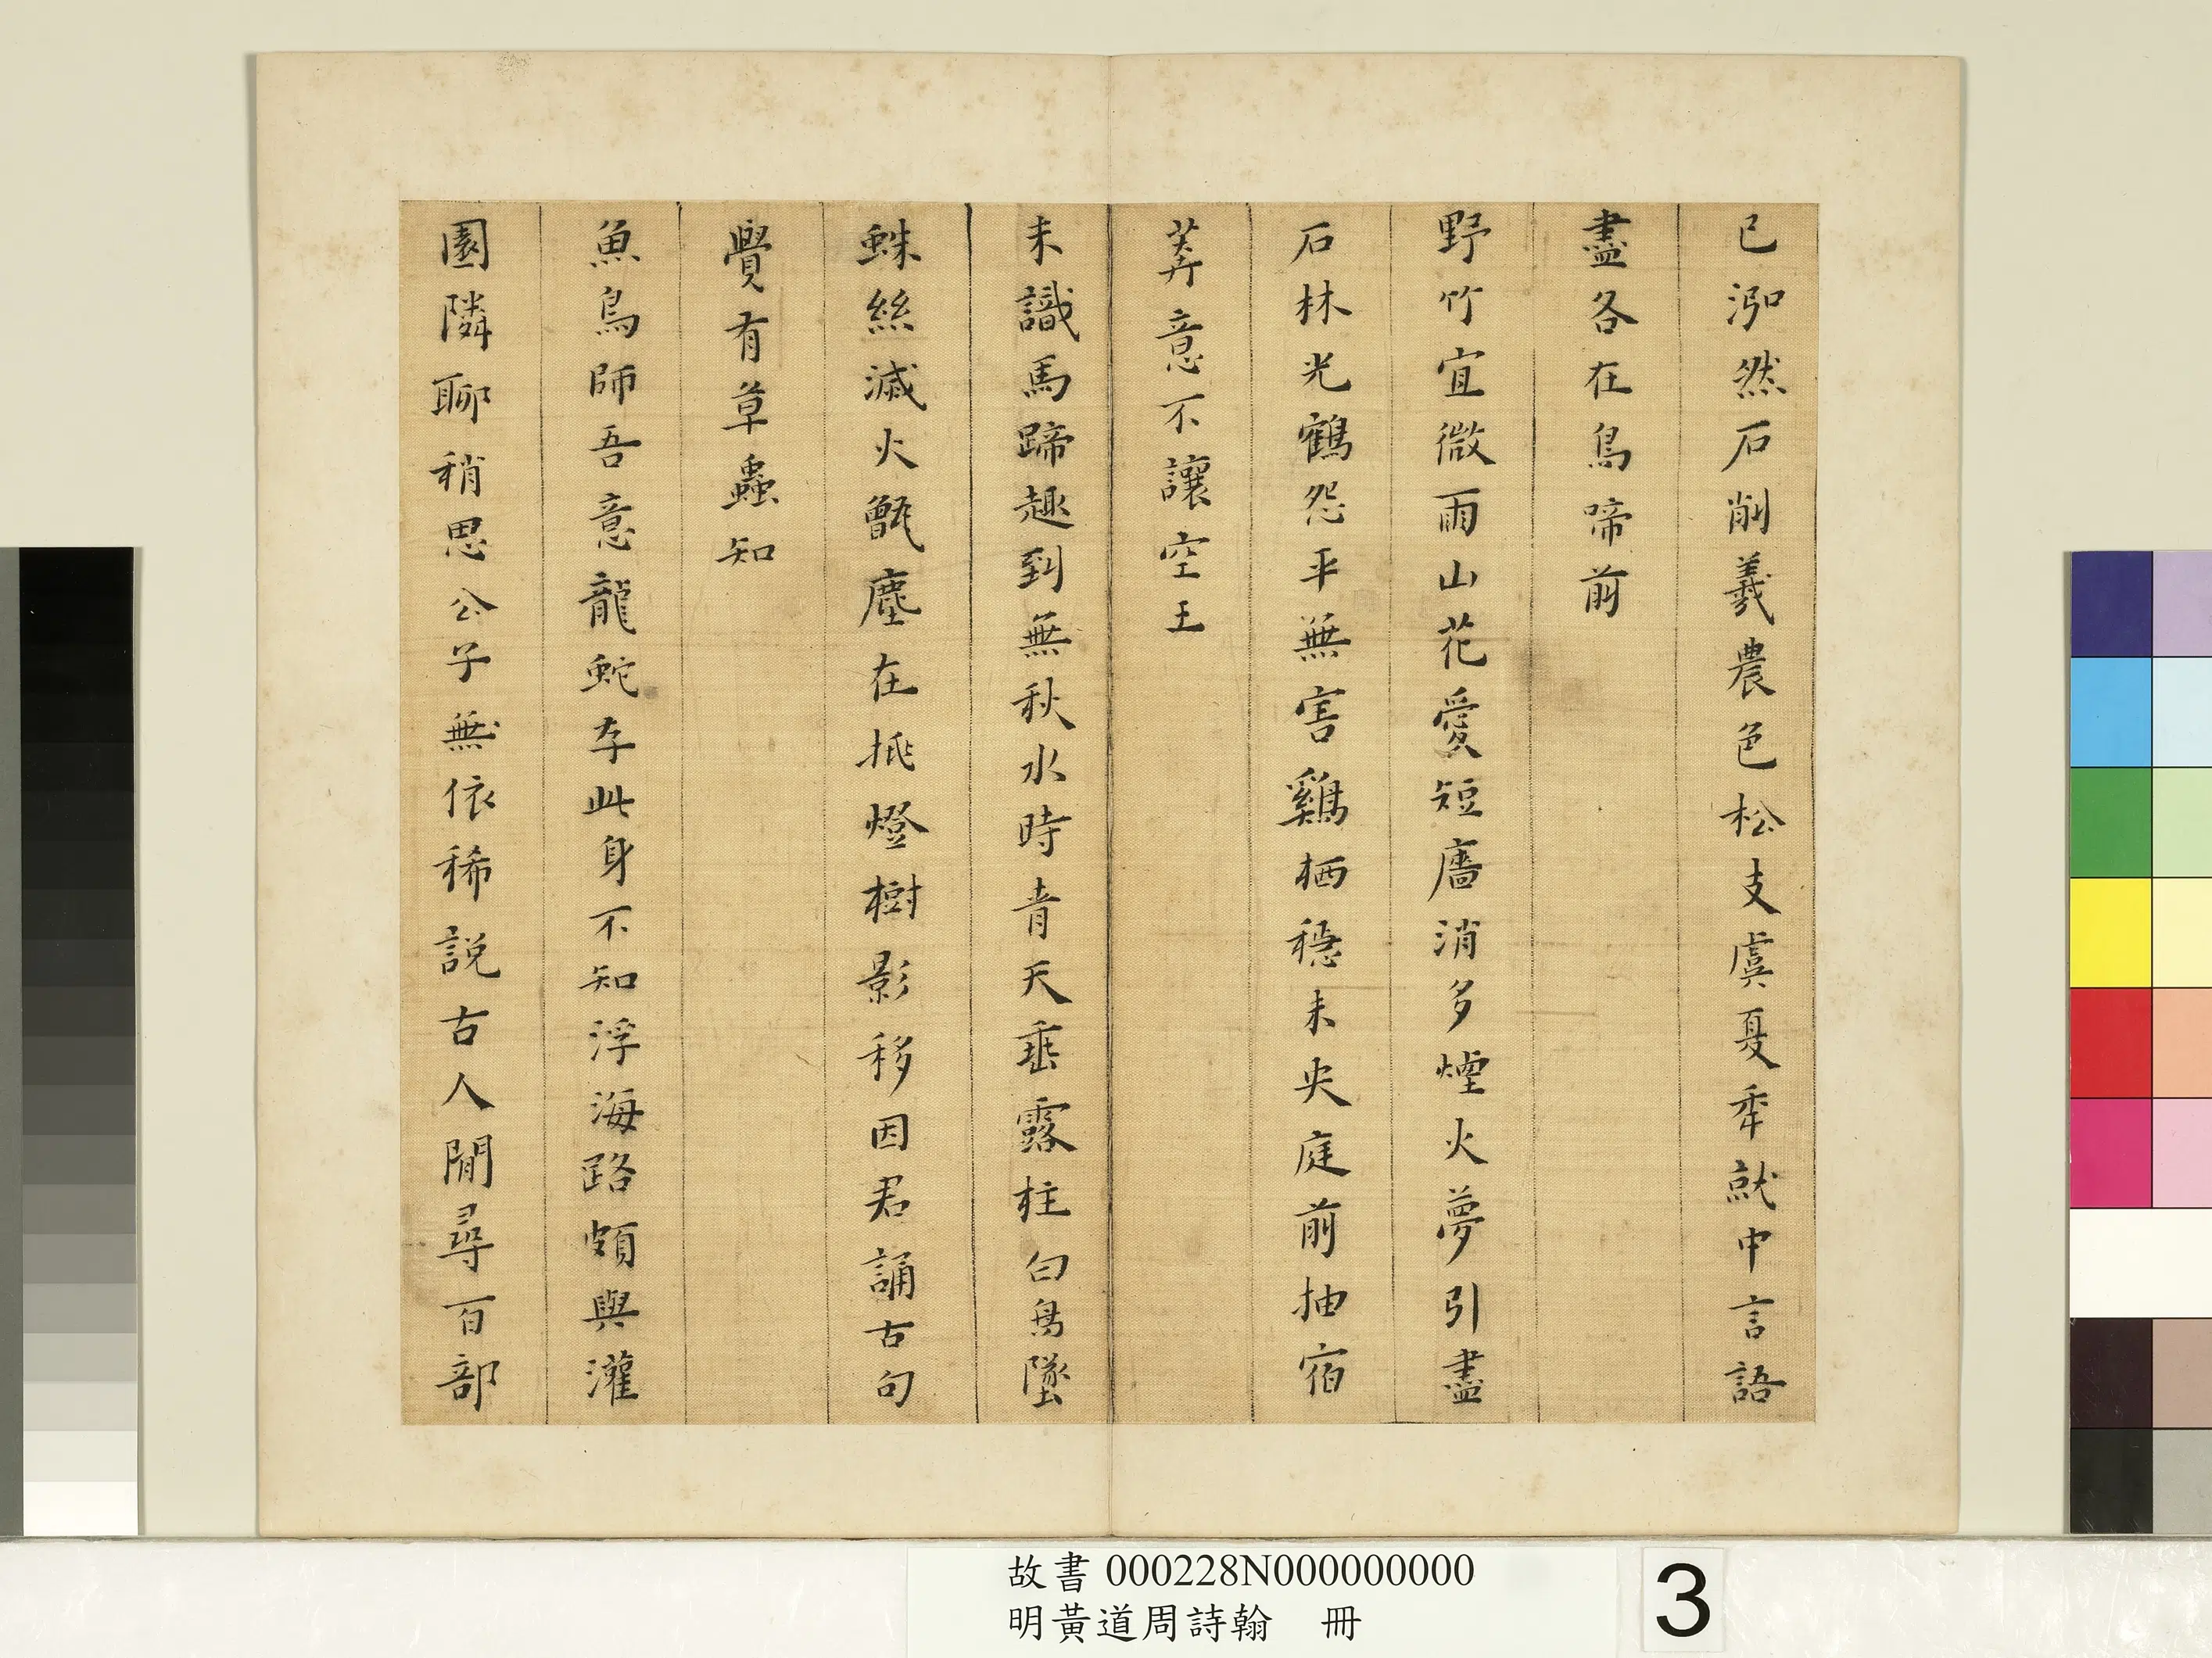 已泓然石削羲農色松支虞夏年就中言語
盡各在鳥啼前
野竹宜微雨山花愛短牆消多煙火夢引盡
石林光鶴怨平無害鷄栖穩未央庭前抽宿
莽意不讓空王
未識馬蹄趣到無秋水時青天垂露柱白鳥墜
蛛絲滅火甑塵在挑燈樹影移因君誦古句
覺有草蟲知
魚鳥師吾意龍蛇存此身不知浮海路頗與灌
園隣聊稍思公子無依稀説古人閒尋百部
故書 000228N000000000
明黃道周詩翰 冊
3